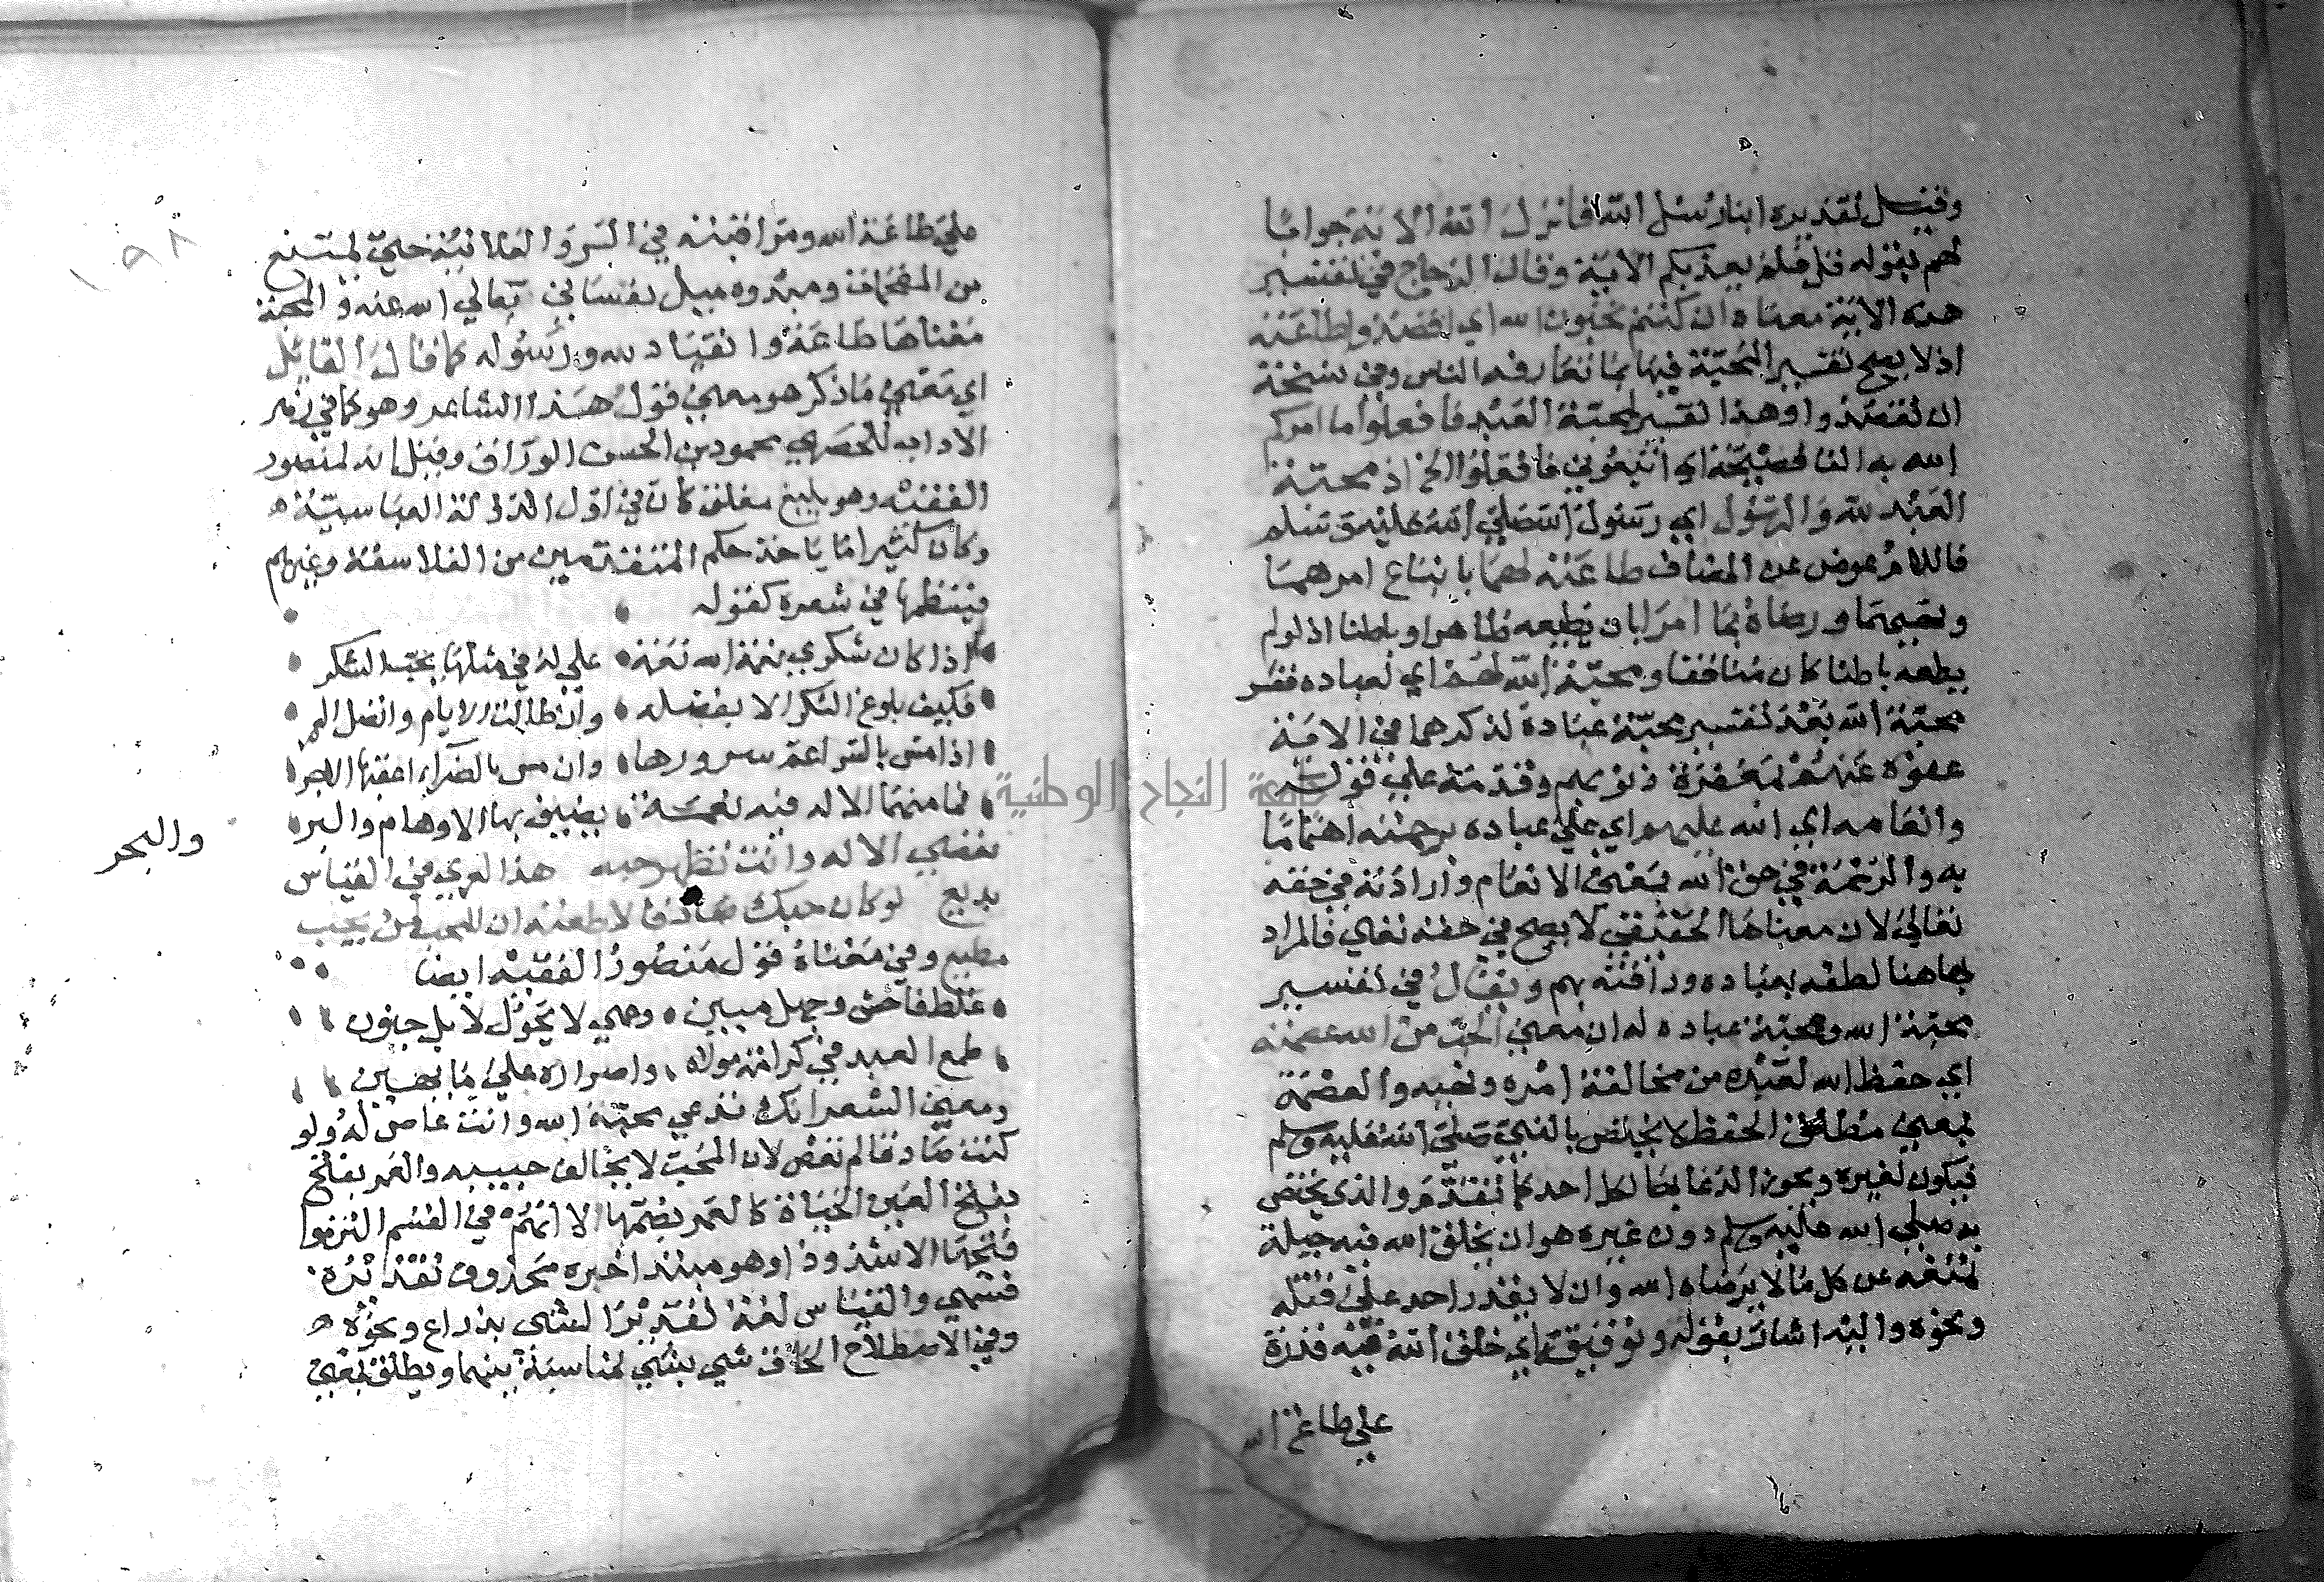 وقيل تقديره ابنا رسل الله فانزل الله الاية جوابا
لهم بقوله قل فلم يعذبكم الاية وقال الزجاج في تفسير
هذه الاية معناه ان كنتم تحبون الله اي اقصدوا طاعته
اذ لا يصح تفسير المحبة فيها بما تعارفه الناس وفي نسخة
ان تقصدوا وهذا تفسير لمحبة العبد فافعلوا ما امركم
الله به الفا فصيحة اي اتبعوني فافعلوا الخ اذ محبة
العبد لله والرسول اي رسول الله صلى الله عليه وسلم
فاللام عوض عن المضاف طاعته لهما باتباع امرهما
ورضاه بما امرا بان يطيعه ظاهرا وباطنا اذ لو لم
يطعه باطنا كان منافقا ومحبة الله لهم اي لعباده فسر
محبة الله بعد تفسير محبة عباده لذكرهما في الاية
عفوه عنهم لمغفرة ذنوبهم وقدمه على قوله
وانعامه اي الله عليهم اي على عباده برحمته اهتماما
به والرحمة في حق الله بمعنى الانعام وارادته في حقه
تعالى لان معناها الحقيقي لا يصح في حقه تعالى فالمراد
بها هنا لطفه بعباده ورافته بهم ويقال في تفسير
محبة الله ومحبة عباده له ان معنى الحب من الله عصمته
اي حفظ الله لعبده من مخالفة امره ونهيه والعصمة
بمعنى مطلق الحفظ لا يختص بالنبي صلى الله عليه وسلم
فيكون لغيره ويجوز الدعا بها لكل احد كما تقدم والذي يختص
به صلى الله عليه وسلم دون غيره هو ان يخلق الله فيه جبلة
تمنعه عن كل ما لا يرضاه الله وان لا يقدر احد على قتله
ونحوه واليه اشار بقوله وتوفيق اي خلق الله فيه قدرة
على طاعة الله
١٩٨
على طاعة الله ومراقبته في السر والعلانية حتى يمتنع
من المخالفة
معناها طاعة وانقياد لله ورسوله كما قال القائل
اي معنى ما ذكر هو معنى قول هذا الشاعر وهو كما في زهر
الاداب للحصري محمود بن الحسن الوراق وقيل انه لمنصور
الفقيه وهو بليغ مفلق كان في اول الدولة العباسية
وكان كثيرا ما ياخذ حكم المتقدمين من الفلاسفة وغيرهم
فينظمها في شعره كقوله
اذا كان شكري نعمة الله نعمة علي له في مثلها يجب الشكر
فكيف بلوغ الشكر الا بفضله وان طالت الايام واتصل العمر
اذا مس بالسرا عم سرورها وان مس بالضراء اعقبها الاجر
فما منهما الا له فيه نعمة يضيق بها الاوهام والبر
والبحر
تعصي الاله وانت تظهر حبه هذا لعمري في القياس
بديع لو كان حبك صادقا لاطعته ان المحب لمن يحب
مطيع وفي معناه قول منصور الفقيه ايضا
غلط فاحش وجهل مبين وعمى لا يحول لا بل جنون
طمع العبد في كرامة مولاه واصراره على ما يهين
ومعنى الشعر انك تدعي محبة الله وانت عاص له ولو
كنت صادقا لم تعص لان المحب لا يخالف حبيبه والعمر بفتح
بفتح العين الحياة كالعمر بضمها الا انهم في القسم التزموا
فتحها الا شذوذا وهو مبتدا خبره محذوف تقديره
قسمي والقياس لغة تقدير الشي بذراع ونحوه
وفي الاصطلاح الحاق شي بشي لمناسبة بينهما ويطلق بمعنى
جامعة النجاح الوطنية